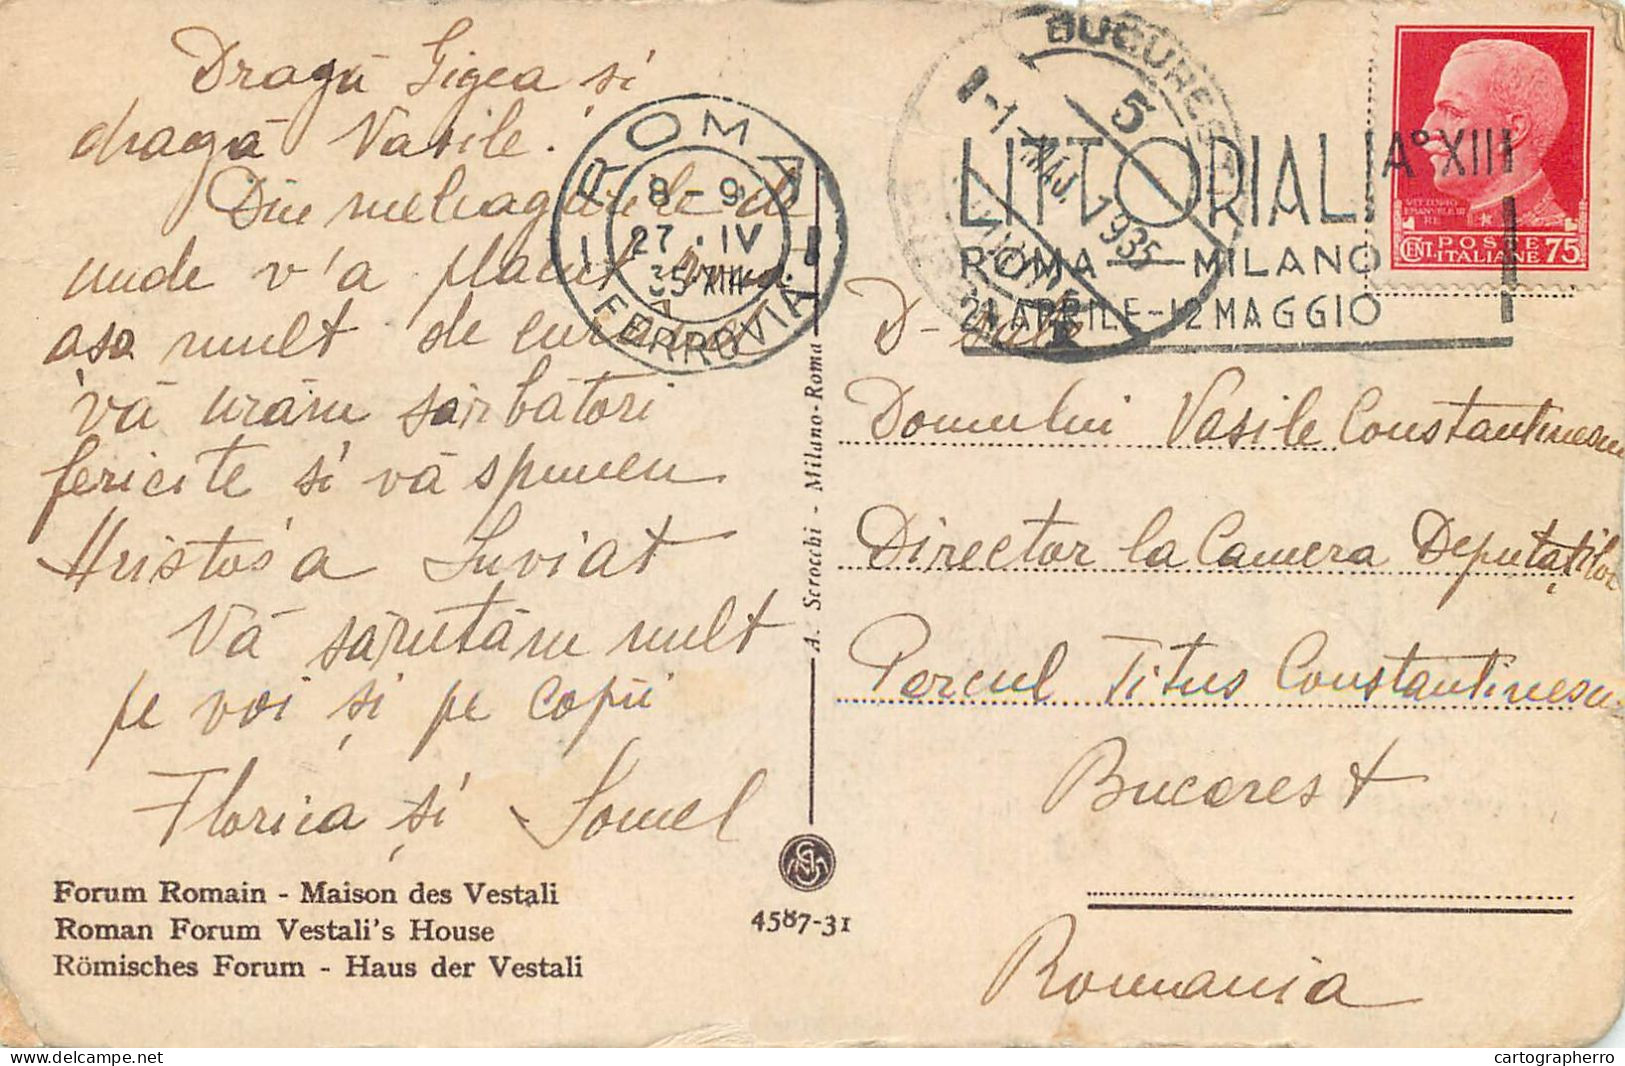 Dragă Gigea și
dragă Vasile!
Din meleagurile de
unde v'a plăcut
asa mult de
vă urăm sărbători
fericite si vă spunem
Hristos a Inviat
Vă sărutăm mult
pe voi și pe copii
Florica și Ionel
Forum Romain - Maison des Vestali
Roman Forum Vestali's House
Römisches Forum - Haus der Vestali
ROMA
8-9
27 · IV
35 XIII
FERROVIA
A. Scrocchi - Milano-Roma
4587-31
BUCUREȘTI
5
-1 MAI. 1935
LITTORIALI A° XIII
ROMA - MILANO
21 APRILE - 12 MAGGIO
VITTORIO
EMANUELE III
RE
CENT. POSTE ITALIANE 75
D-sale
Domnului Vasile Constantinescu
Director la Camera Deputaților
Parcul Titus Constantinescu
Bucarest
Romania
cartographerro